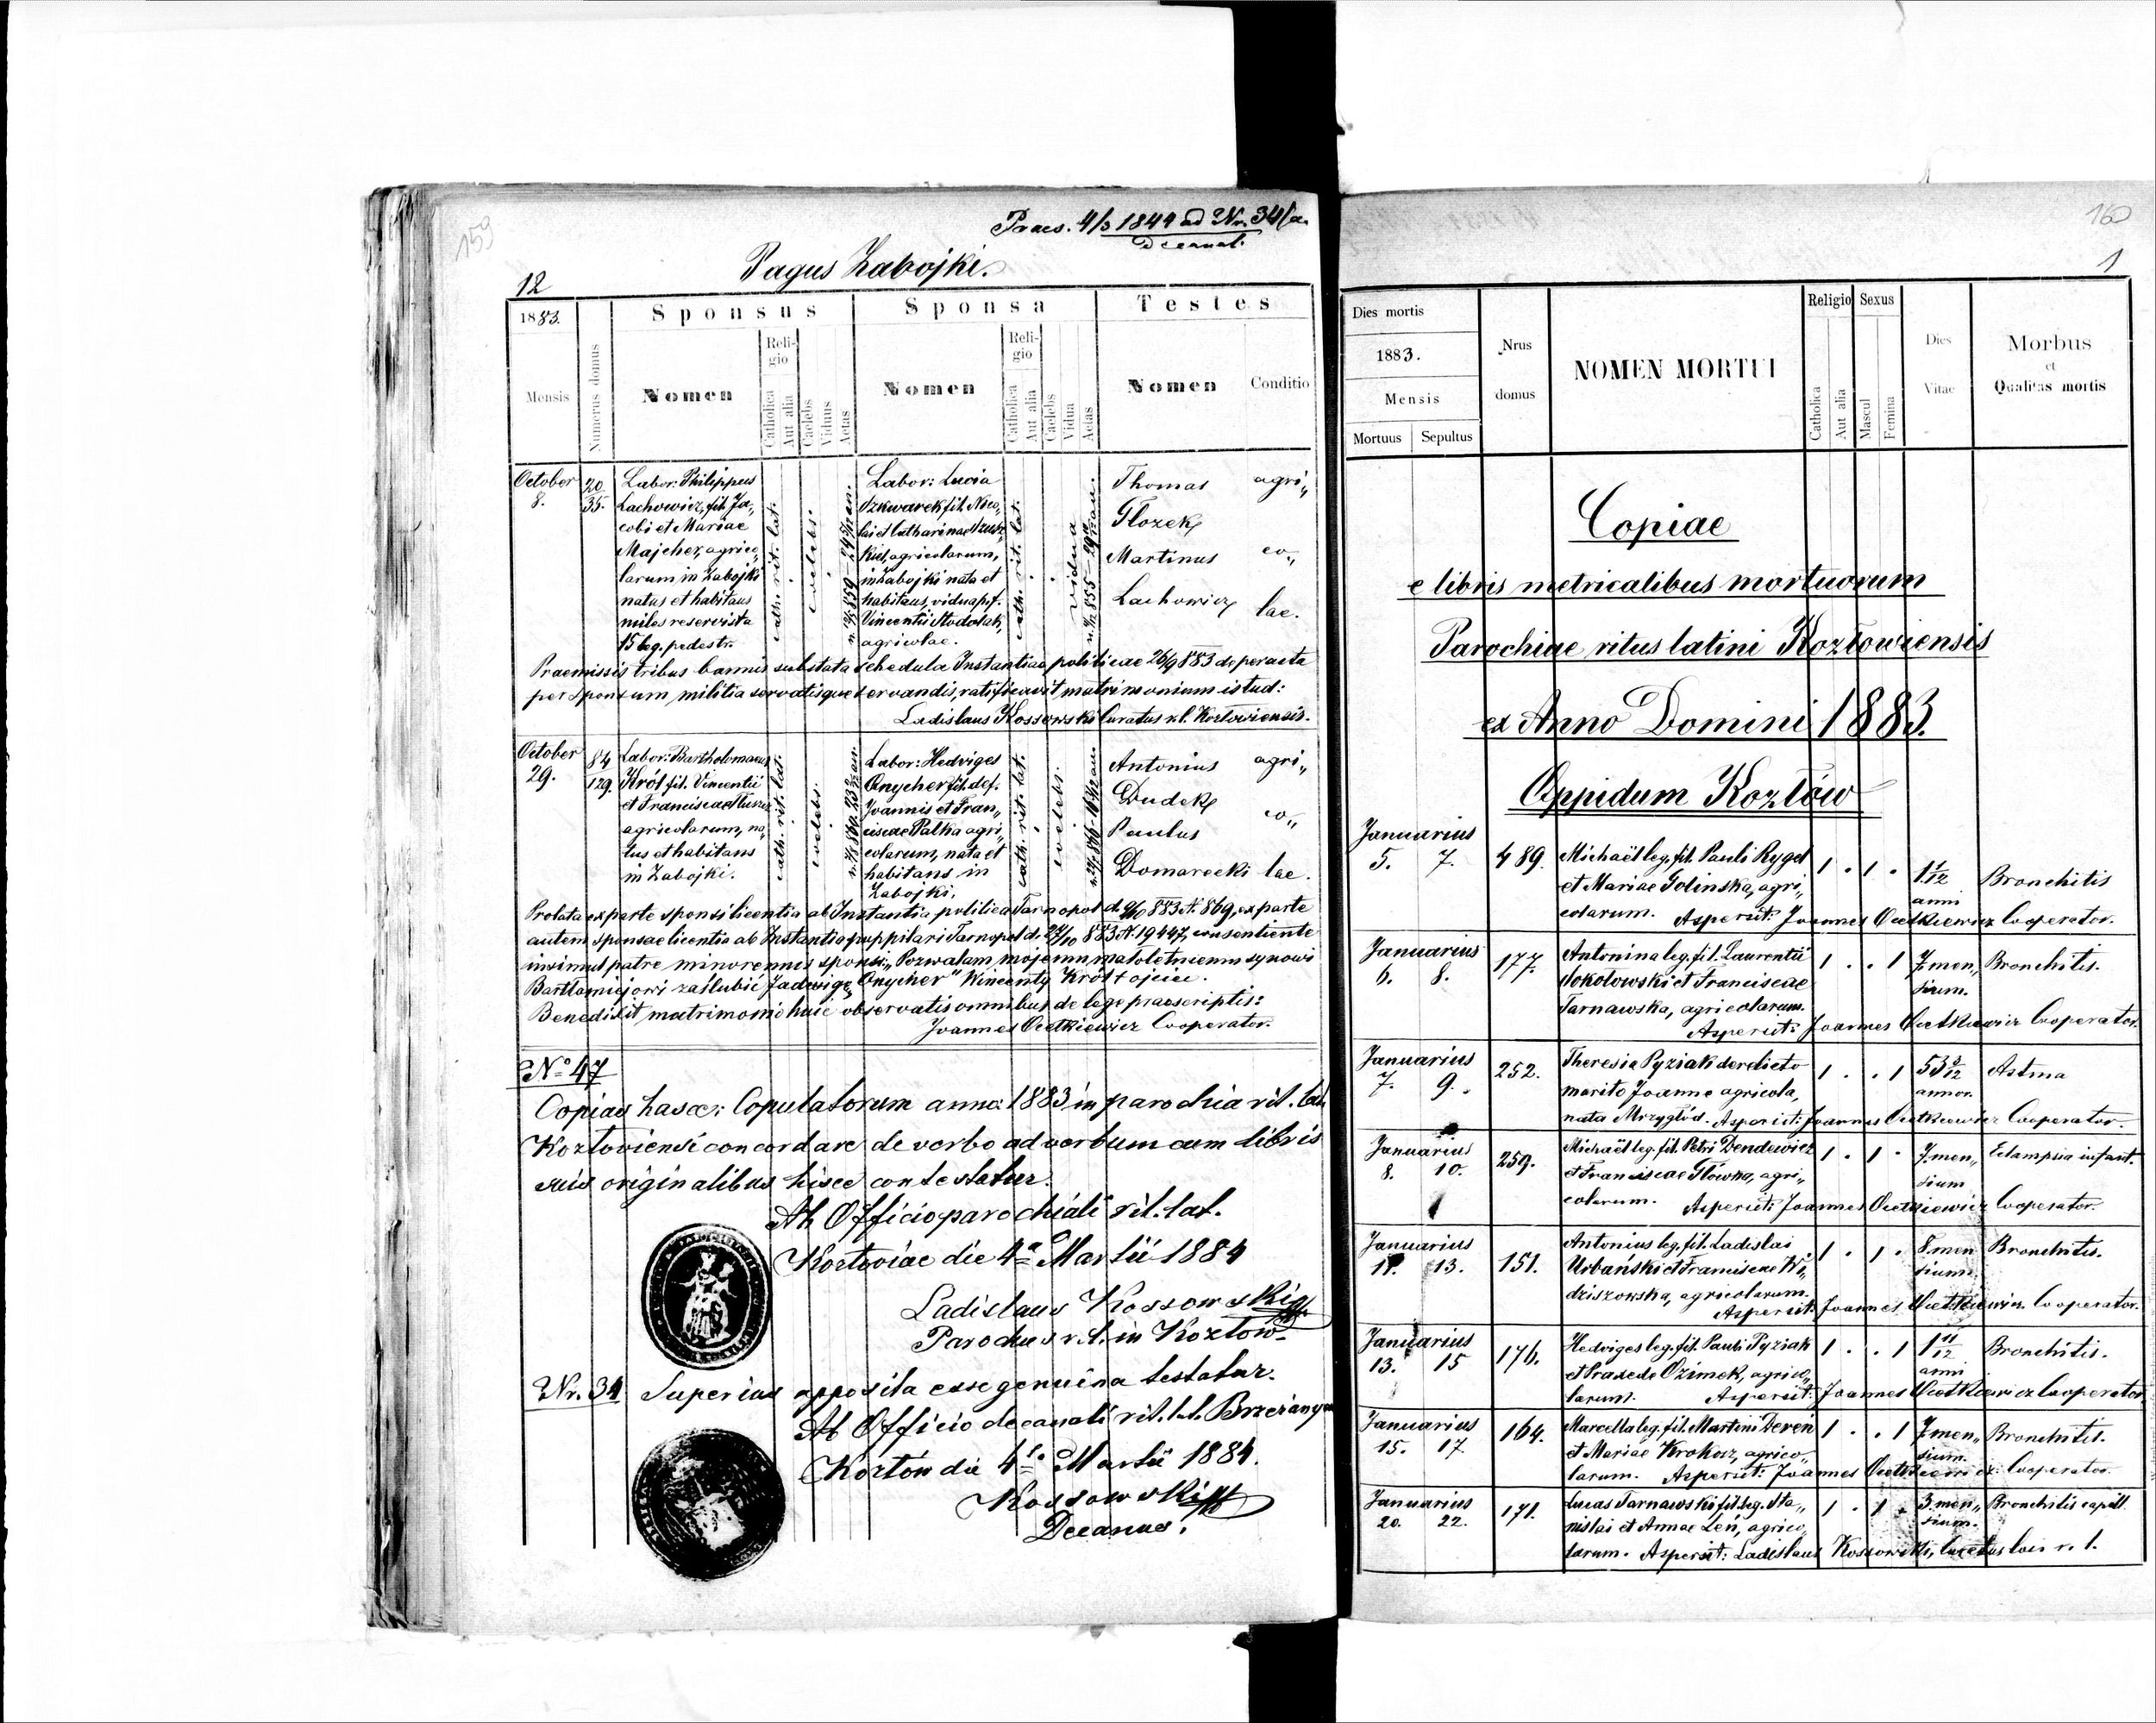 159
Praes. 4/3 1844 ad Nr. 34/a.
Decanal.
12
Pagus Zabojki.
1883.
Mensis
Numerus domus
Sponsus
Nomen
Religio
Catholica
Aut alia
Caelebs
Viduus
Aetas
Sponsa
Nomen
Religio
Catholica
Aut alia
Caelebs
Vidua
Aetas
Testes
Nomen
Conditio
October
8.
20
35.
Labor: Philippus
Lachowicz, fil. Ja„
cobi et Mariae
Majcher, agrico„
larum in Zabojki
natus et habitans
miles reservista
15 leg. pedestr.
cath. rit. lat.
caelebs.
Labor: Lucia
Szkwarek fil. Nico„
lai et Catharinae
Kiel, agricolarum,
in Zabojki nata et
habitans, vidua p.f.
Vincentii Stodolak,
agricolae.
cath. rit. lat.
vidua
Thomas
Glozek
Martinus
Lachowicz
agri„
co„
lae.
Praemissis tribus bannis substata schedula Instantiae politicae 26/9 883 de peracta
per sponsum militia servatisque servandis, ratificavit matrimonium istud:
Ladislaus Kossowski Curatus r.l. Kozłowiensis.
October
29.
84
129.
Labor: Bartholomaeus
Król fil. Vincentii
et Franciscae
agricolarum, na„
tus et habitans
in Zabojki.
cath. rit. lat.
caelebs.
Labor: Hedviges
Onycher fil. def.
Joannis et Fran„
ciscae Pałka agri„
colarum, nata et
habitans in
Zabojki.
cath. rit. lat.
caelebs.
Antonius
Dudek
Paulus
Domarecki
agri„
co„
lae.
Prolata ex parte sponsi licentia ab Instantia politica Tarnopol d. 9/10 883 N. 869, ex parte
autem sponsae licentia ab Instantia puppilari Tarnopol d. 27/10 883 N. 19447, consentiente
insimul patre minorennis sponsi: „Pozwalam mojemu małoletniemu synowi
Bartłomiejowi zaślubić Jadwigę Onycher" Wincenty Król + ojciec.
Benedixit matrimonio huic observatis omnibus de lege praescriptis:
Joannes Ocetkiewicz Cooperator.
No 47
Copias hasce Copulatorum anno 1883 in parochia rit. lat.
Kozłoviensi concordare de verbo ad verbum cum libris
suis originalibus hisce contestatur.
Ab Officio parochiali rit. lat.
Kozłoviae die 4a Martii 1884
Ladislaus Kossowski
Parochus r.l. in Kozłów
Nr. 34 Superius apposita esse genuina testatur.
Ab Officio decanali rit. lat. Brzeżany
Kozłów die 4 Martii 1884.
Kossowski
Decanus.
160
1
Dies mortis
1883.
Mensis
Mortuus
Sepultus
Nrus
domus
NOMEN MORTUI
Religio
Catholica
Aut alia
Sexus
Mascul
Femina
Dies
Vitae
Morbus
et
Qualitas mortis
Copiae
e libris metricalibus mortuorum
Parochiae ritus latini Kozłowiensis
ex Anno Domini 1883.
Oppidum Kozłów
Januarius
5. 7. 489. Michaël leg. fil. Pauli Rygel 1 . 1 . 1 1/12 Bronchitis
et Mariae Golinska, agri„ anni
colarum. Aspersit: Joannes Ocetkiewicz Cooperator.
Januarius
6. 8. 177. Antonina leg. fil. Laurentii 1 . . 1 7. men„ Bronchitis.
Sokołowski et Franciscae sium.
Tarnawska, agricolarum.
Aspersit: Joannes Ocetkiewicz Cooperator.
Januarius
7. 9. 252. Theresia Pyziak derelicto 1 . . 1 53 Astma
marito Joanne agricola, annor.
nata Mrzygłód. Aspersit: Joannes Ocetkiewicz Cooperator.
Januarius
8. 10. 259. Michaël leg. fil. Petri Dendewicz 1 . 1 . 7. men„ Eclampsia infant.
et Franciscae Główka, agri„ sium
colarum. Aspersit: Joannes Ocetkiewicz Cooperator.
Januarius
11. 13. 151. Antonius leg. fil. Ladislai 1 . 1 . 8. men Bronchitis.
Urbański et Franciscae Wę„ sium.
dziszowska, agricolarum.
Aspersit: Joannes Ocetkiewicz Cooperator.
Januarius
13. 15 176. Hedviges leg. fil. Pauli Pyziak 1 . . 1 1 11/12 Bronchitis.
et Praxede Ozimek, agrico„ anni
larum. Aspersit: Joannes Ocetkiewicz Cooperator
Januarius
15. 17. 164. Marcella leg. fil. Martini Dereń 1 . . 1 7. men„ Bronchitis.
et Mariae Krokosz, agrico„ sium.
larum. Aspersit: Joannes Ocetkiewicz Cooperator.
Januarius
20. 22. 171. Lucas Tarnawski fil. leg. Sta„ 1 . 1 . 3. men„ Bronchitis capill.
nislai et Annae Leń, agrico„ sium.
larum. Aspersit: Ladislaus Kossowski, Curatus loci r. l.